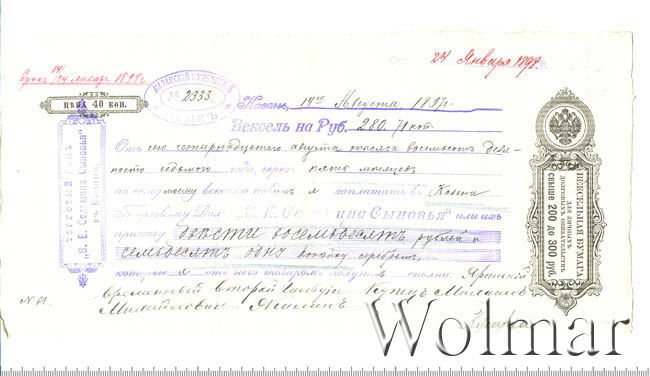 24 Января 1898 г.
Срок 14/24 января 1898 г.
ЦѢНА 40 коп.
КАЗАНСКІЙ КУПЕЧЕСКІЙ
№ 2333
БАНКЪ
Казань, 14го Августа 1897 г.
Вексель на Руб. 280. 71 коп
Отъ сего четырнадцатаго августа тысяча восемьсотъ девя-
носто седьмого года, черезъ пять мѣсяцевъ
по сему моему векселю повиненъ я заплатить въ Казани
Торговому Дому "В. Е. Соломина Сыновья" или их
приказу двѣсти восемьдесятъ рублей и
семьдесятъ одну копѣйку серебромъ,
которые я отъ него товаромъ получилъ сполна.
временный второй гильдіи купецъ
Михайловичъ
№ 61.
ТОРГОВЫЙ ДОМЪ
"В. Е. Соломина Сыновья"
въ Казани.
ВЕКСЕЛЬНАЯ БУМАГА
ДЛЯ ЛИЧНЫХЪ
ДОЛГОВЫХЪ ОБЯЗАТЕЛЬСТВЪ
СВЫШЕ 200 ДО 300 РУБ.
Wolmar